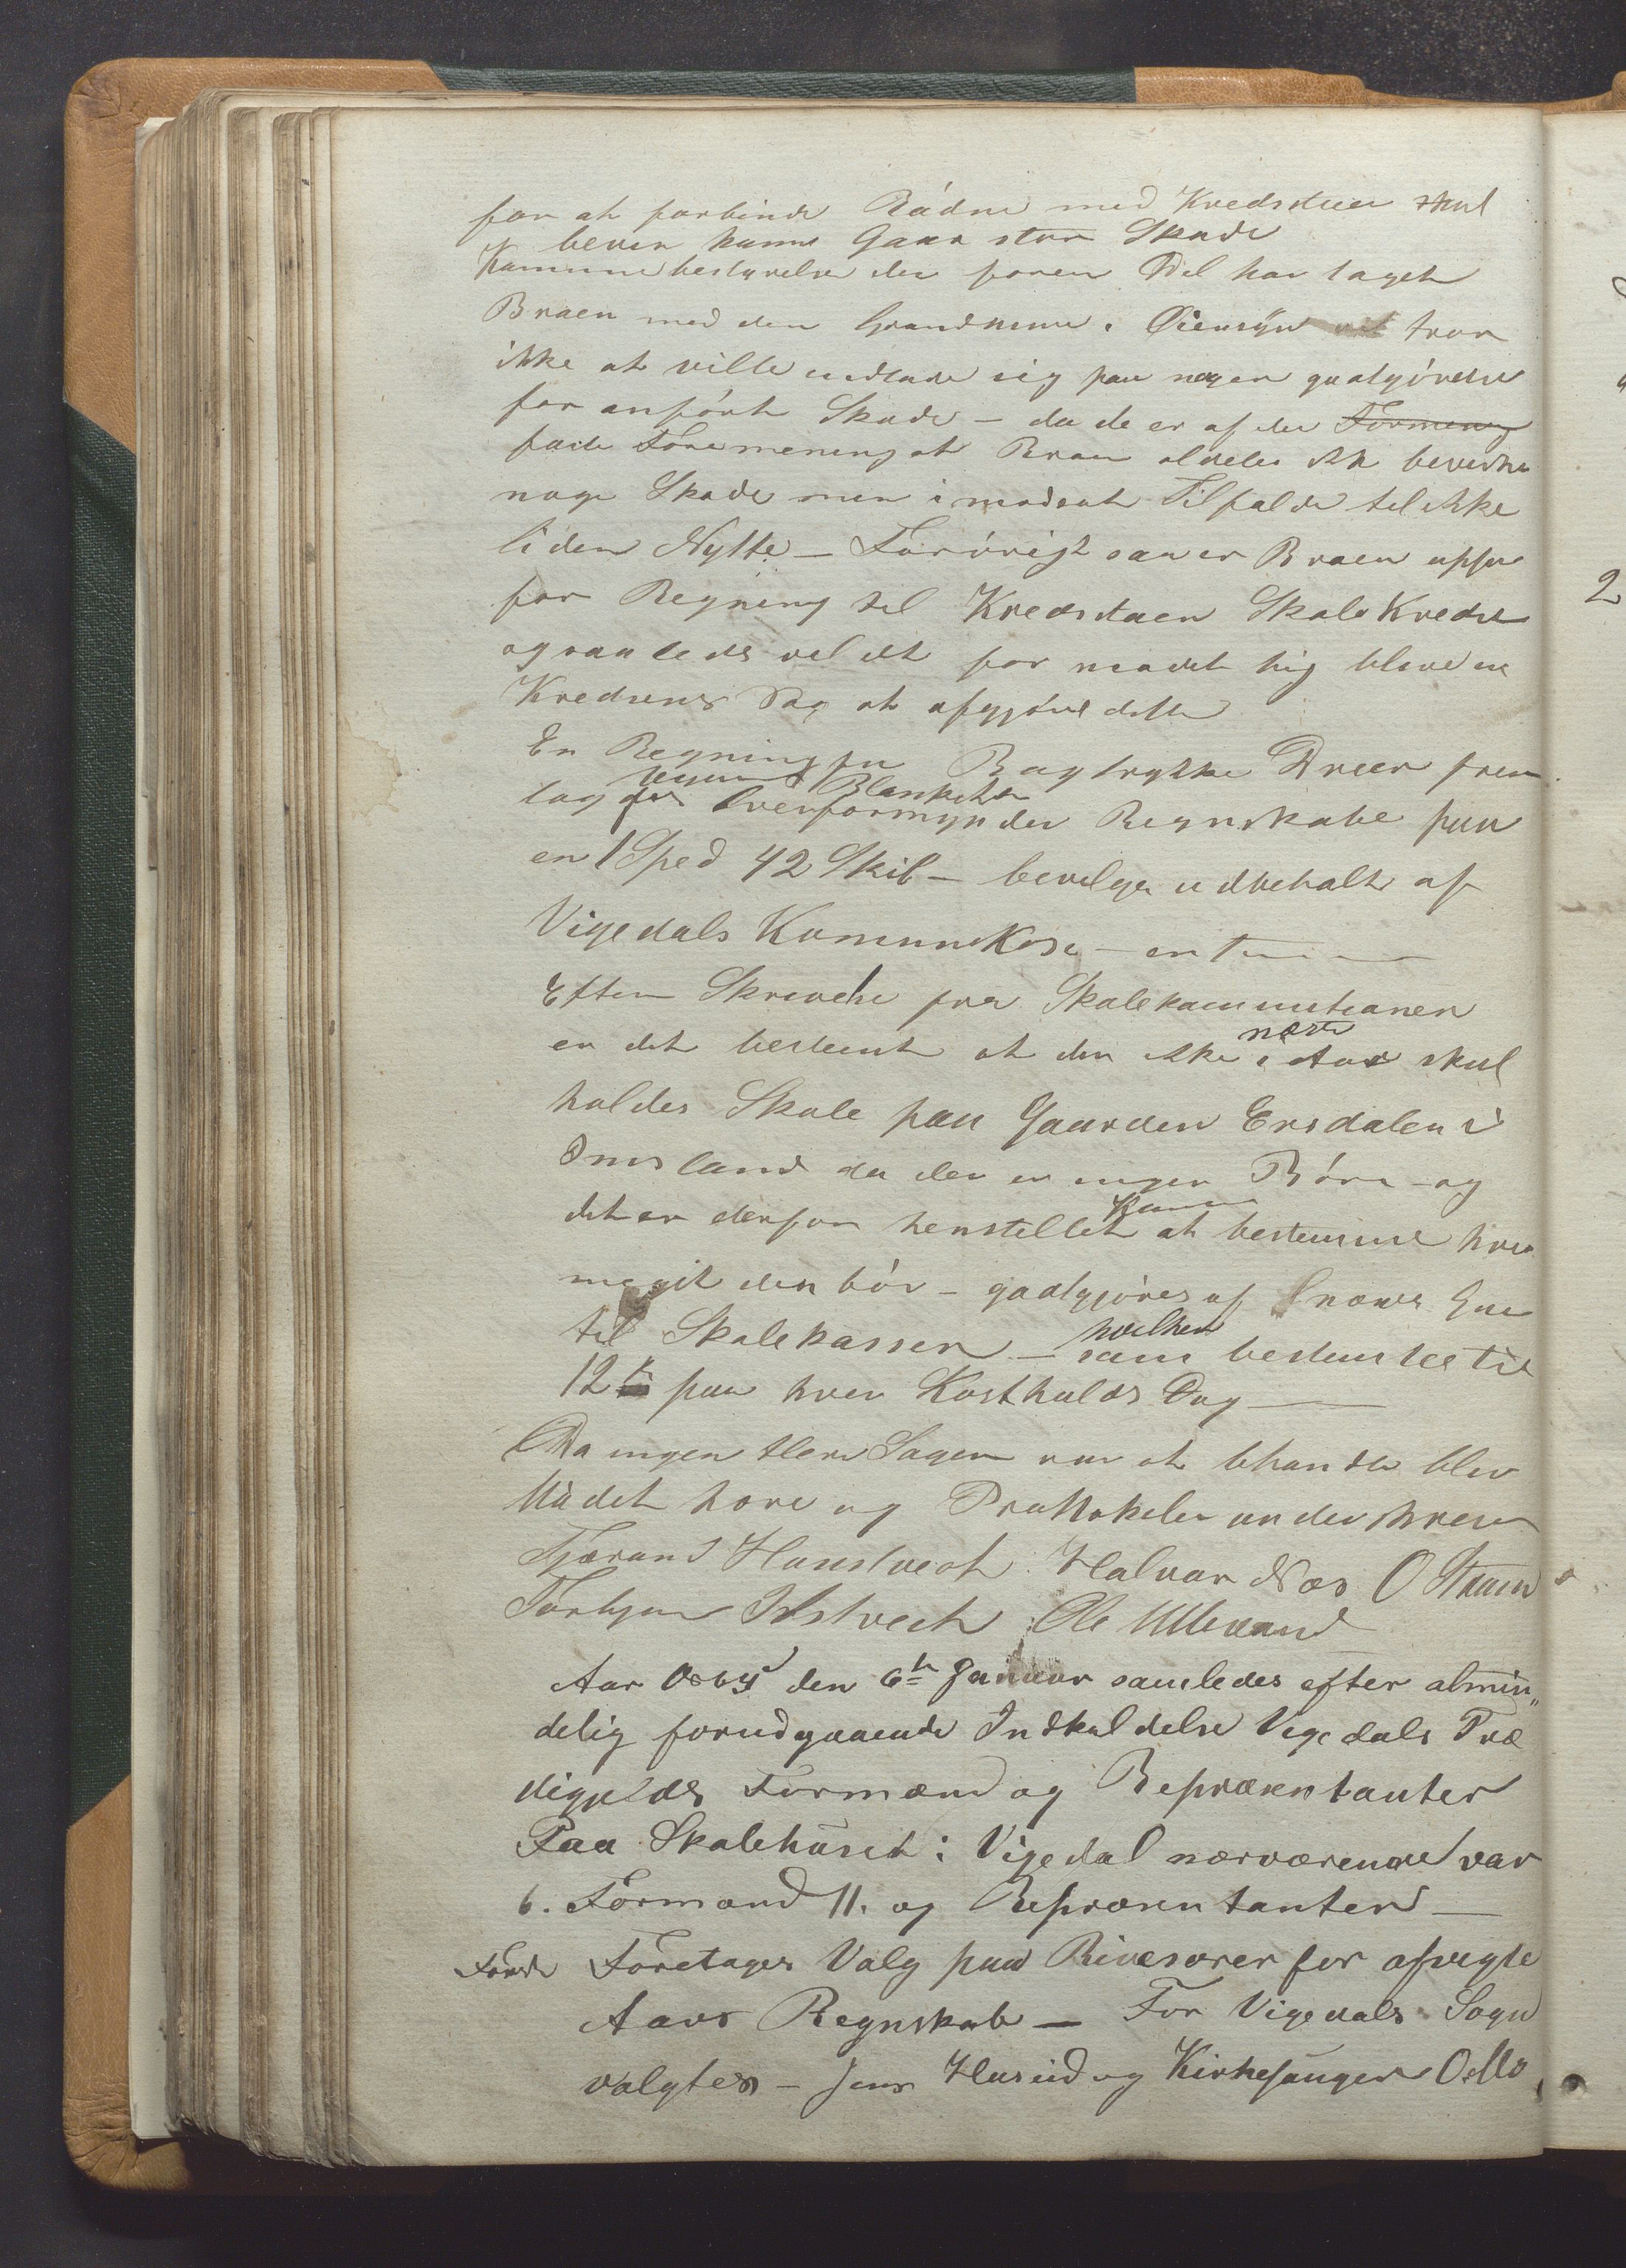 for at forbinde Rádne med Kredsduen skul
bever hanns Gaar stor Skade
Kommunebestyrelse der foren Del har taget
Broen med den Grundmur i Øiensÿn tror
ikke at ville indlade sig paa nogen godtgjórelse
for anfórt Skade – da de er af den Formening
faste Formening at Broen aldeles ikke bevirke
noge Skade men i modsat Tilfælde til ikke
liden Nytte – Forórigt saa er Broen opført
for Regning til Kredsduen Skole Kreds
og saaledes vel det formodentlig blive en
Kredsens Sag at afgjóre dette
En Regning fra Bogtrykker Dreer frem
lagdes Blanketter
Overformynder Regnskabe paa
en 1 Sped 42 Skil – bevilges udbetalt af
Vigedals Komunekase –
Efter Skrivelse fra Skolekommitionen
er det bestemt at der ikke i næste Aar skul
holdes Skole paa Gaarden Ersdalen i
Imsland da der er ingen Bórn – og
det er derfor henstillet Kom at bestemme hvor
meget den bór – godtgjóres af
til Skolekassen – hvilket som bestemtes til
12 s paa hver Kostholds Dag –
Da ingen flere Sager var at behandle blev
Mødet hæve og Prottokolen underskreven
Tjærand Hanstveit Halvor Næs O Stuen
Torbjørn Istveit Ole Ullevand
Aar 1864 den 6te Januar samledes efter almin„
delig forudgaaende Indkaldelse Vigedals Præ
digjelds Formænd og Repræsentanter
Paa Skolehúset i Vigedal nærværende var
6. Formænd 11. og Repræsentanter –
Første Foretages Valg paa Rivesorer for afvigte
Aars Regnskab – For Vigedals Sogn
valgtes – Jens Húseid og Kirkesanger Osllo